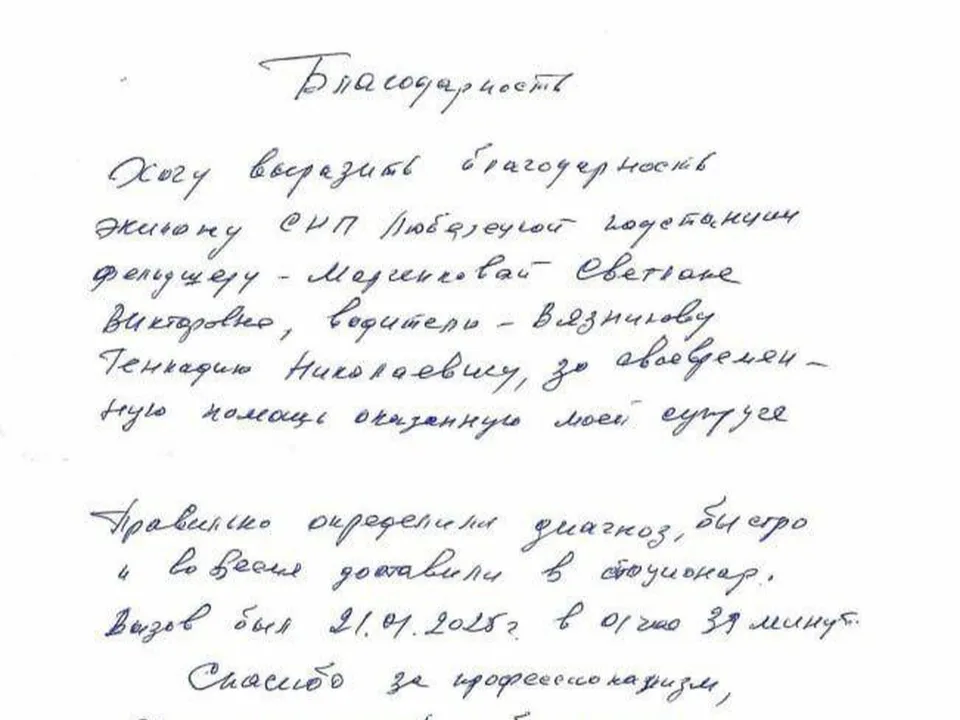 Благодарность
Хочу выразить благодарность
экипажу СМП Люберецкой подстанции
фельдшеру - Марченковой Светлане
Викторовне, водителю - Вязникову
Геннадию Николаевичу, за своевремен-
ную помощь оказанную моей супруге
Правильно определили диагноз, быстро
и вовремя доставили в стационар.
Вызов был 21.01.2025г. в 01 час 39 минут.
Спасибо за профессионализм,